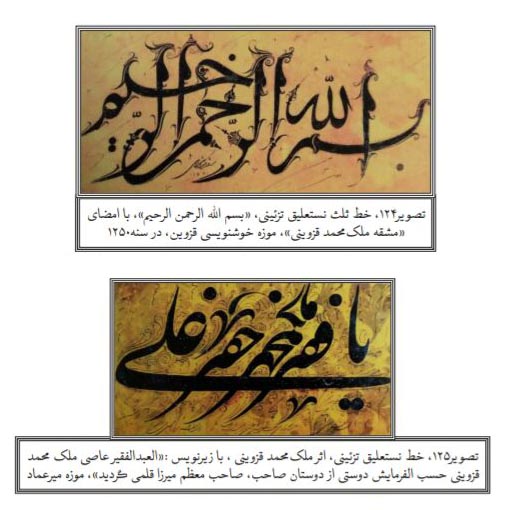 بسم الله الرحمن الرحیم
تصویر۱۲۴، خط ثلث نستعلیق تزئینی، «بسم الله الرحمن الرحیم»، با امضای
«مشقه ملک محمد قزوینی»، موزه خوشنویسی قزوین، در سنه۱۲۵۰
تصویر۱۲۵، خط نستعلیق تزئینی، اثر ملک محمد قزوینی ، با زیرنویس :«العبدالفقیر عاصی ملک محمد
قزوینی حسب الفرمایش دوستی از دوستان صاحب، صاحب معظم میرزا قلمی گردید»، موزه میرعماد